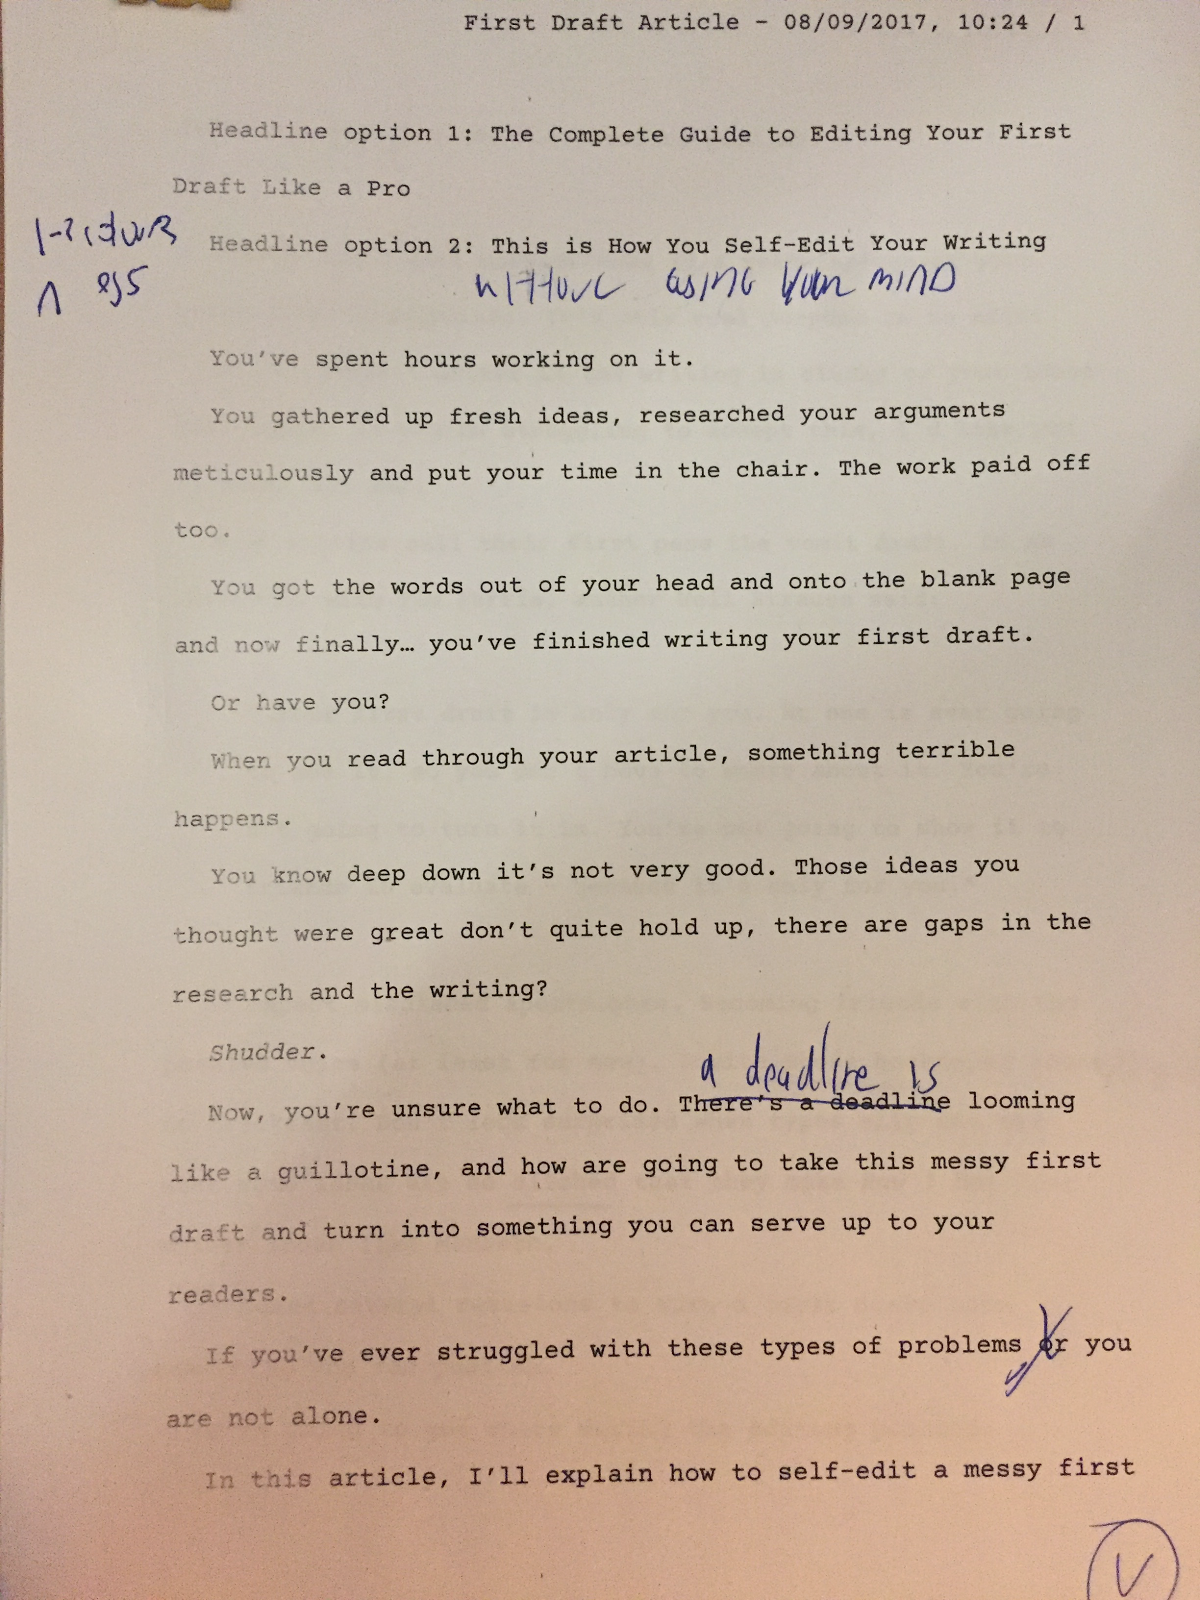 First Draft Article - 08/09/2017, 10:24 / 1
Headline option 1: The Complete Guide to Editing Your First
Draft Like a Pro
Headline option 2: This is How You Self-Edit Your Writing
without losing your mind
You've spent hours working on it.
You gathered up fresh ideas, researched your arguments
meticulously and put your time in the chair. The work paid off
too.
You got the words out of your head and onto the blank page
and now finally… you've finished writing your first draft.
Or have you?
When you read through your article, something terrible
happens.
You know deep down it's not very good. Those ideas you
thought were great don't quite hold up, there are gaps in the
research and the writing?
Shudder.
a deadline is
Now, you're unsure what to do. There's a deadline looming
like a guillotine, and how are going to take this messy first
draft and turn into something you can serve up to your
readers.
If you've ever struggled with these types of problems or you
are not alone.
In this article, I'll explain how to self-edit a messy first